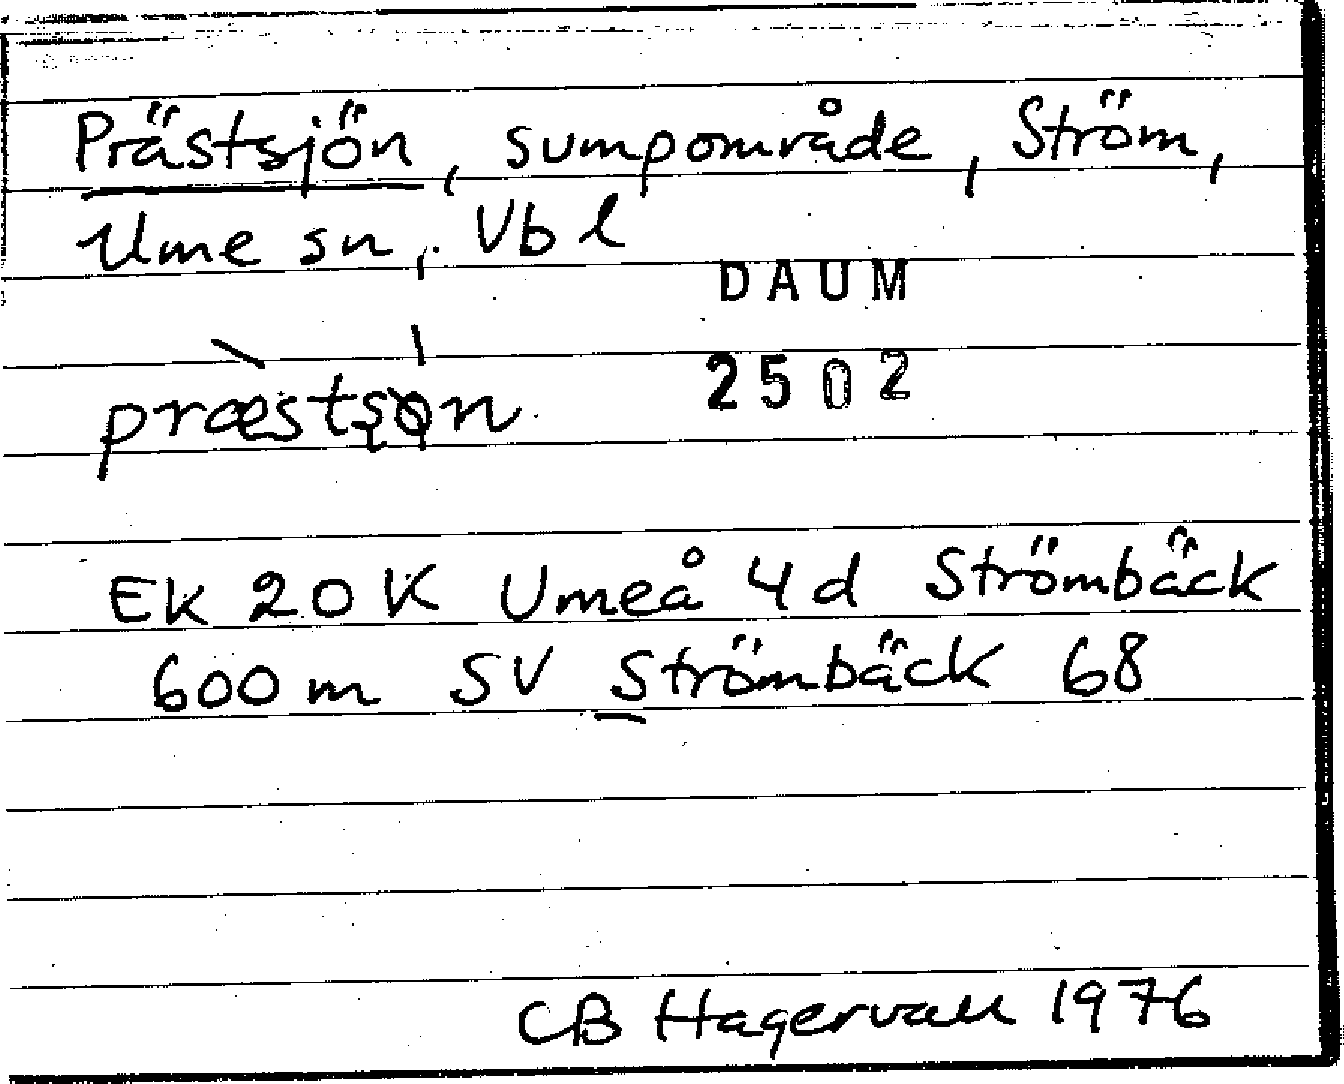 Prästsjön, sumpområde, Ström,
Ume sn, Vb l
DAUM
2502
præstşøn
Ek 20 K Umeå 4 d Strömbäck
600 m SV Strömbäck 68
CB Hagervall 1976